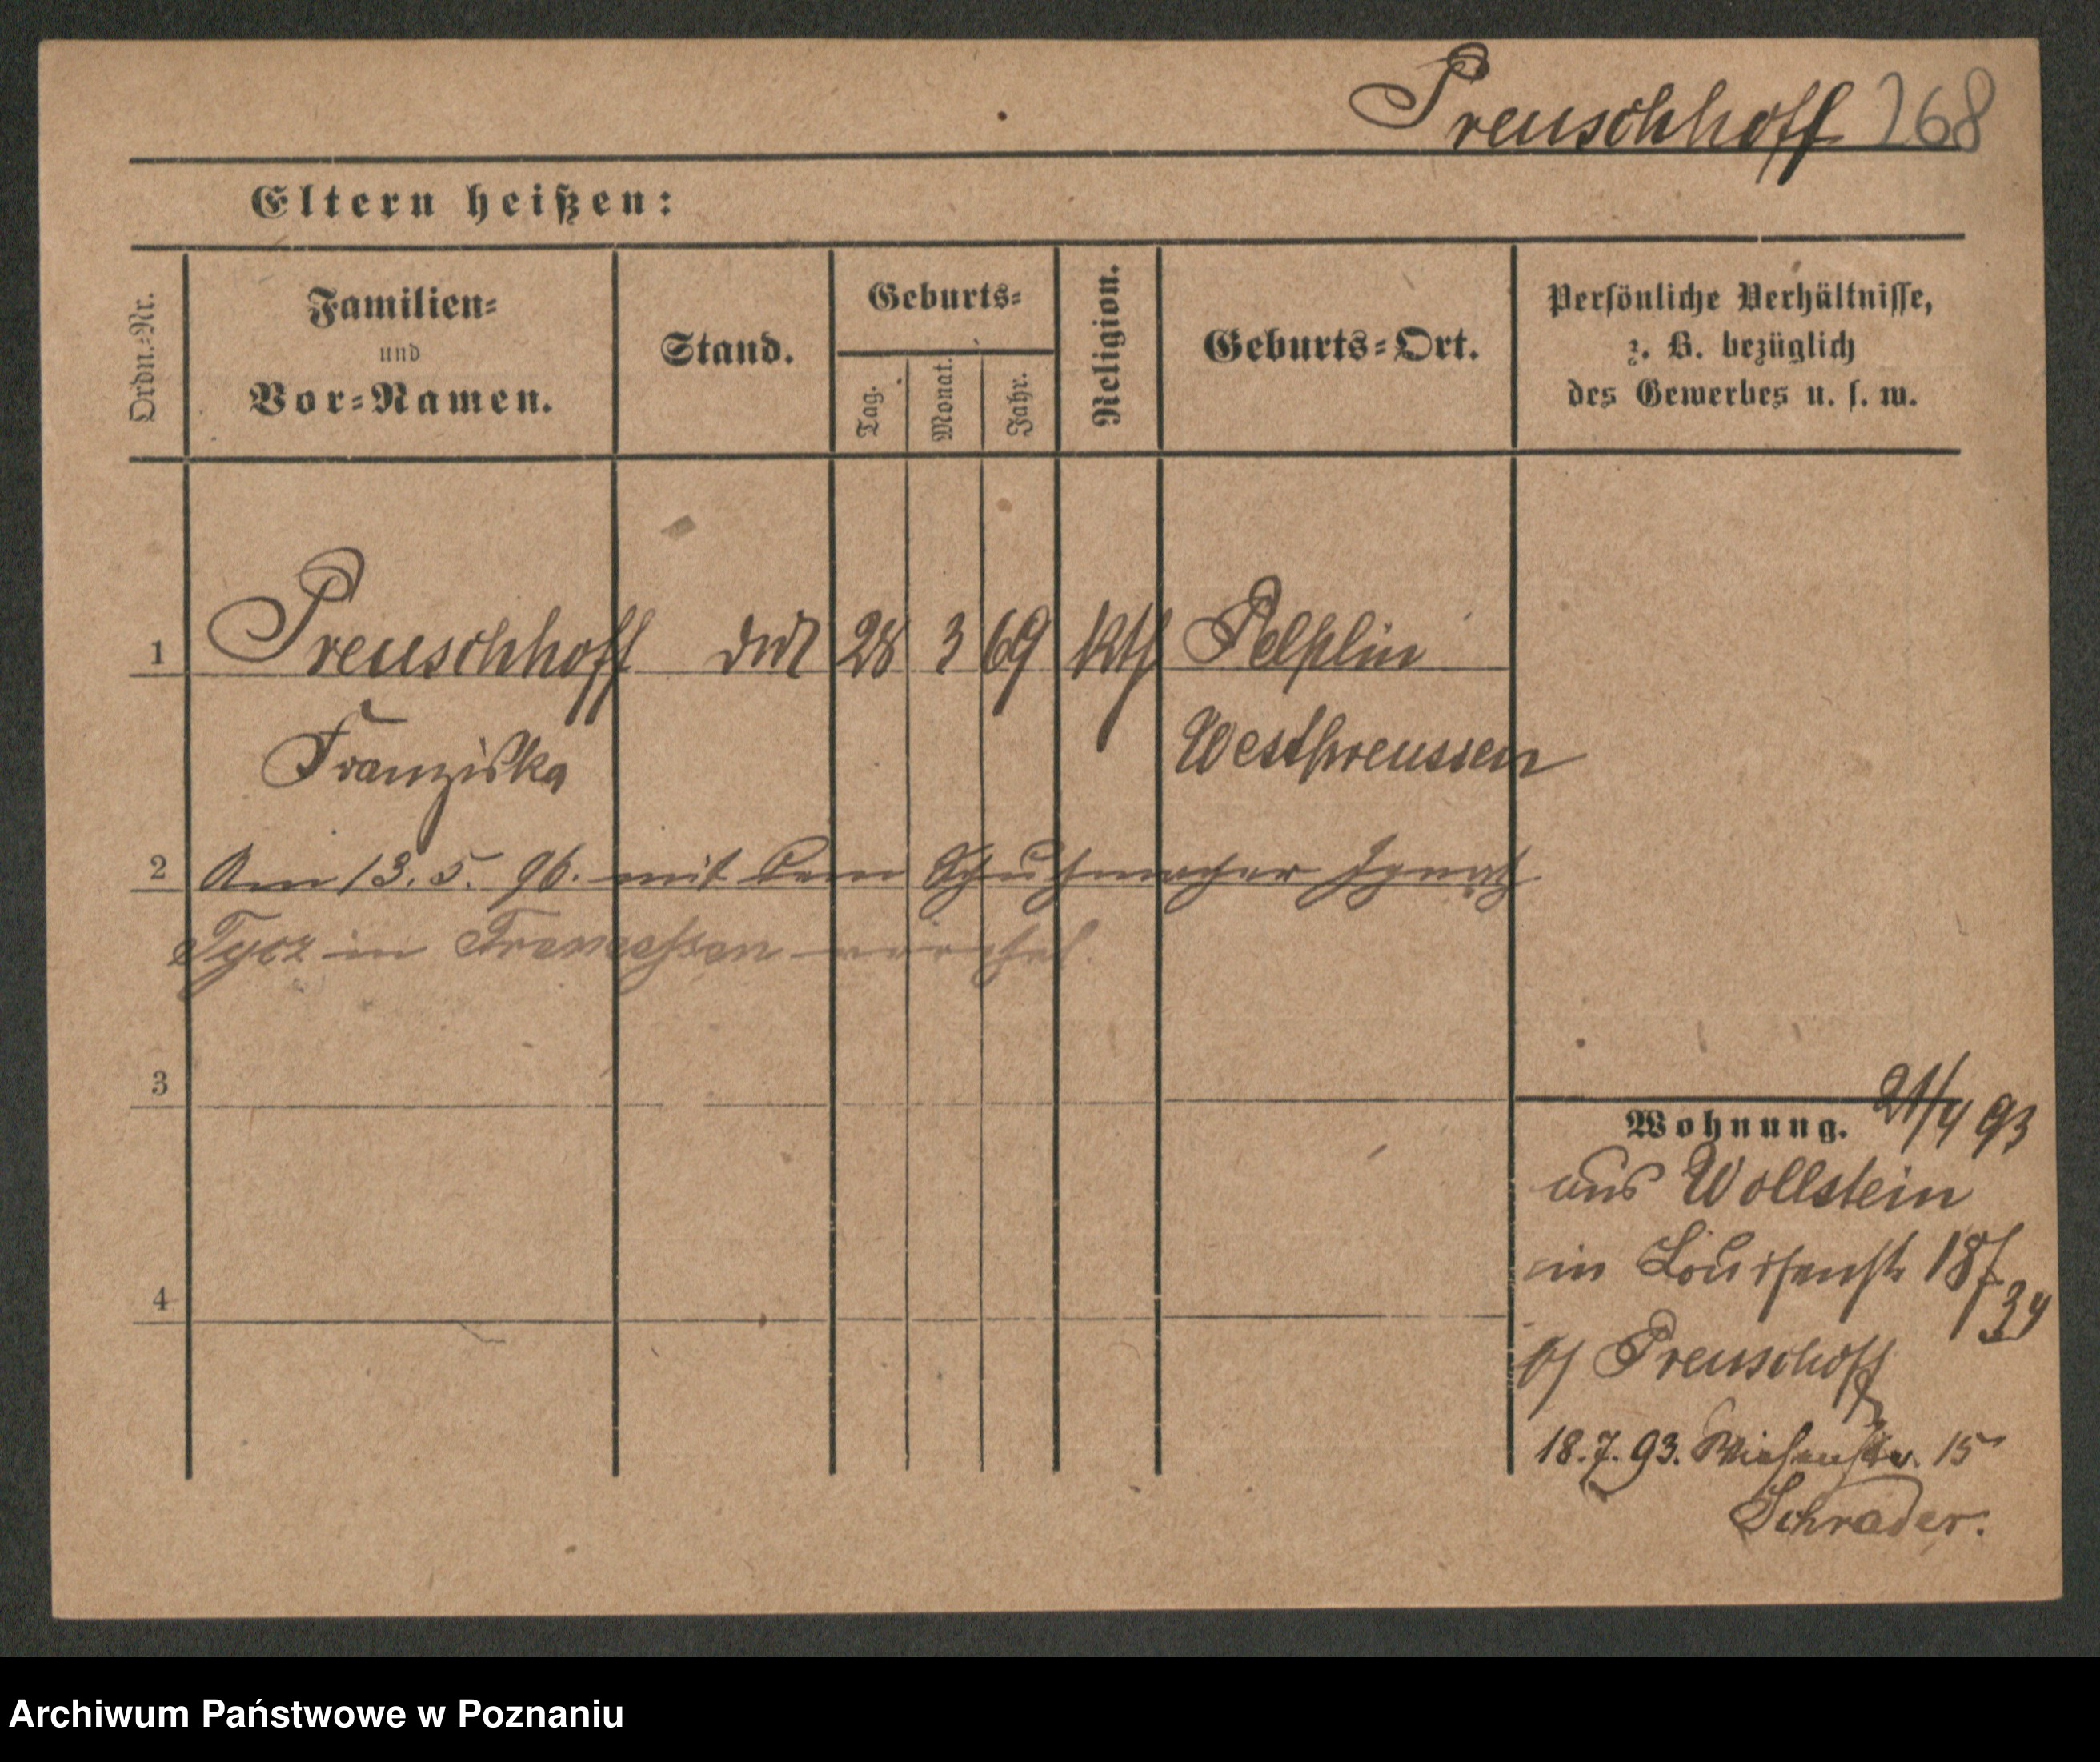 Preuschhoff 268
Eltern heißen:
Ordn.-Nr.
Familien-
und
Vor-Namen.
Stand.
Geburts-
Tag.
Monat.
Jahr.
Religion.
Geburts-Ort.
Persönliche Verhältnisse,
z. B. bezüglich
des Gewerbes u. s. w.
1 Preuschhoff 28 3 69 kth Pelplin
Franziska Westpreussen
2 Am 13. 5. 96. mit dem Schuhmacher Ignatz
in Tremessen
3
Wohnung. 21/4 93
aus Wollstein
in Louisenstr 18
4
b/ Preuschoff
18.7.93. Wiesenstr. 15
Schrader.
Archiwum Państwowe w Poznaniu